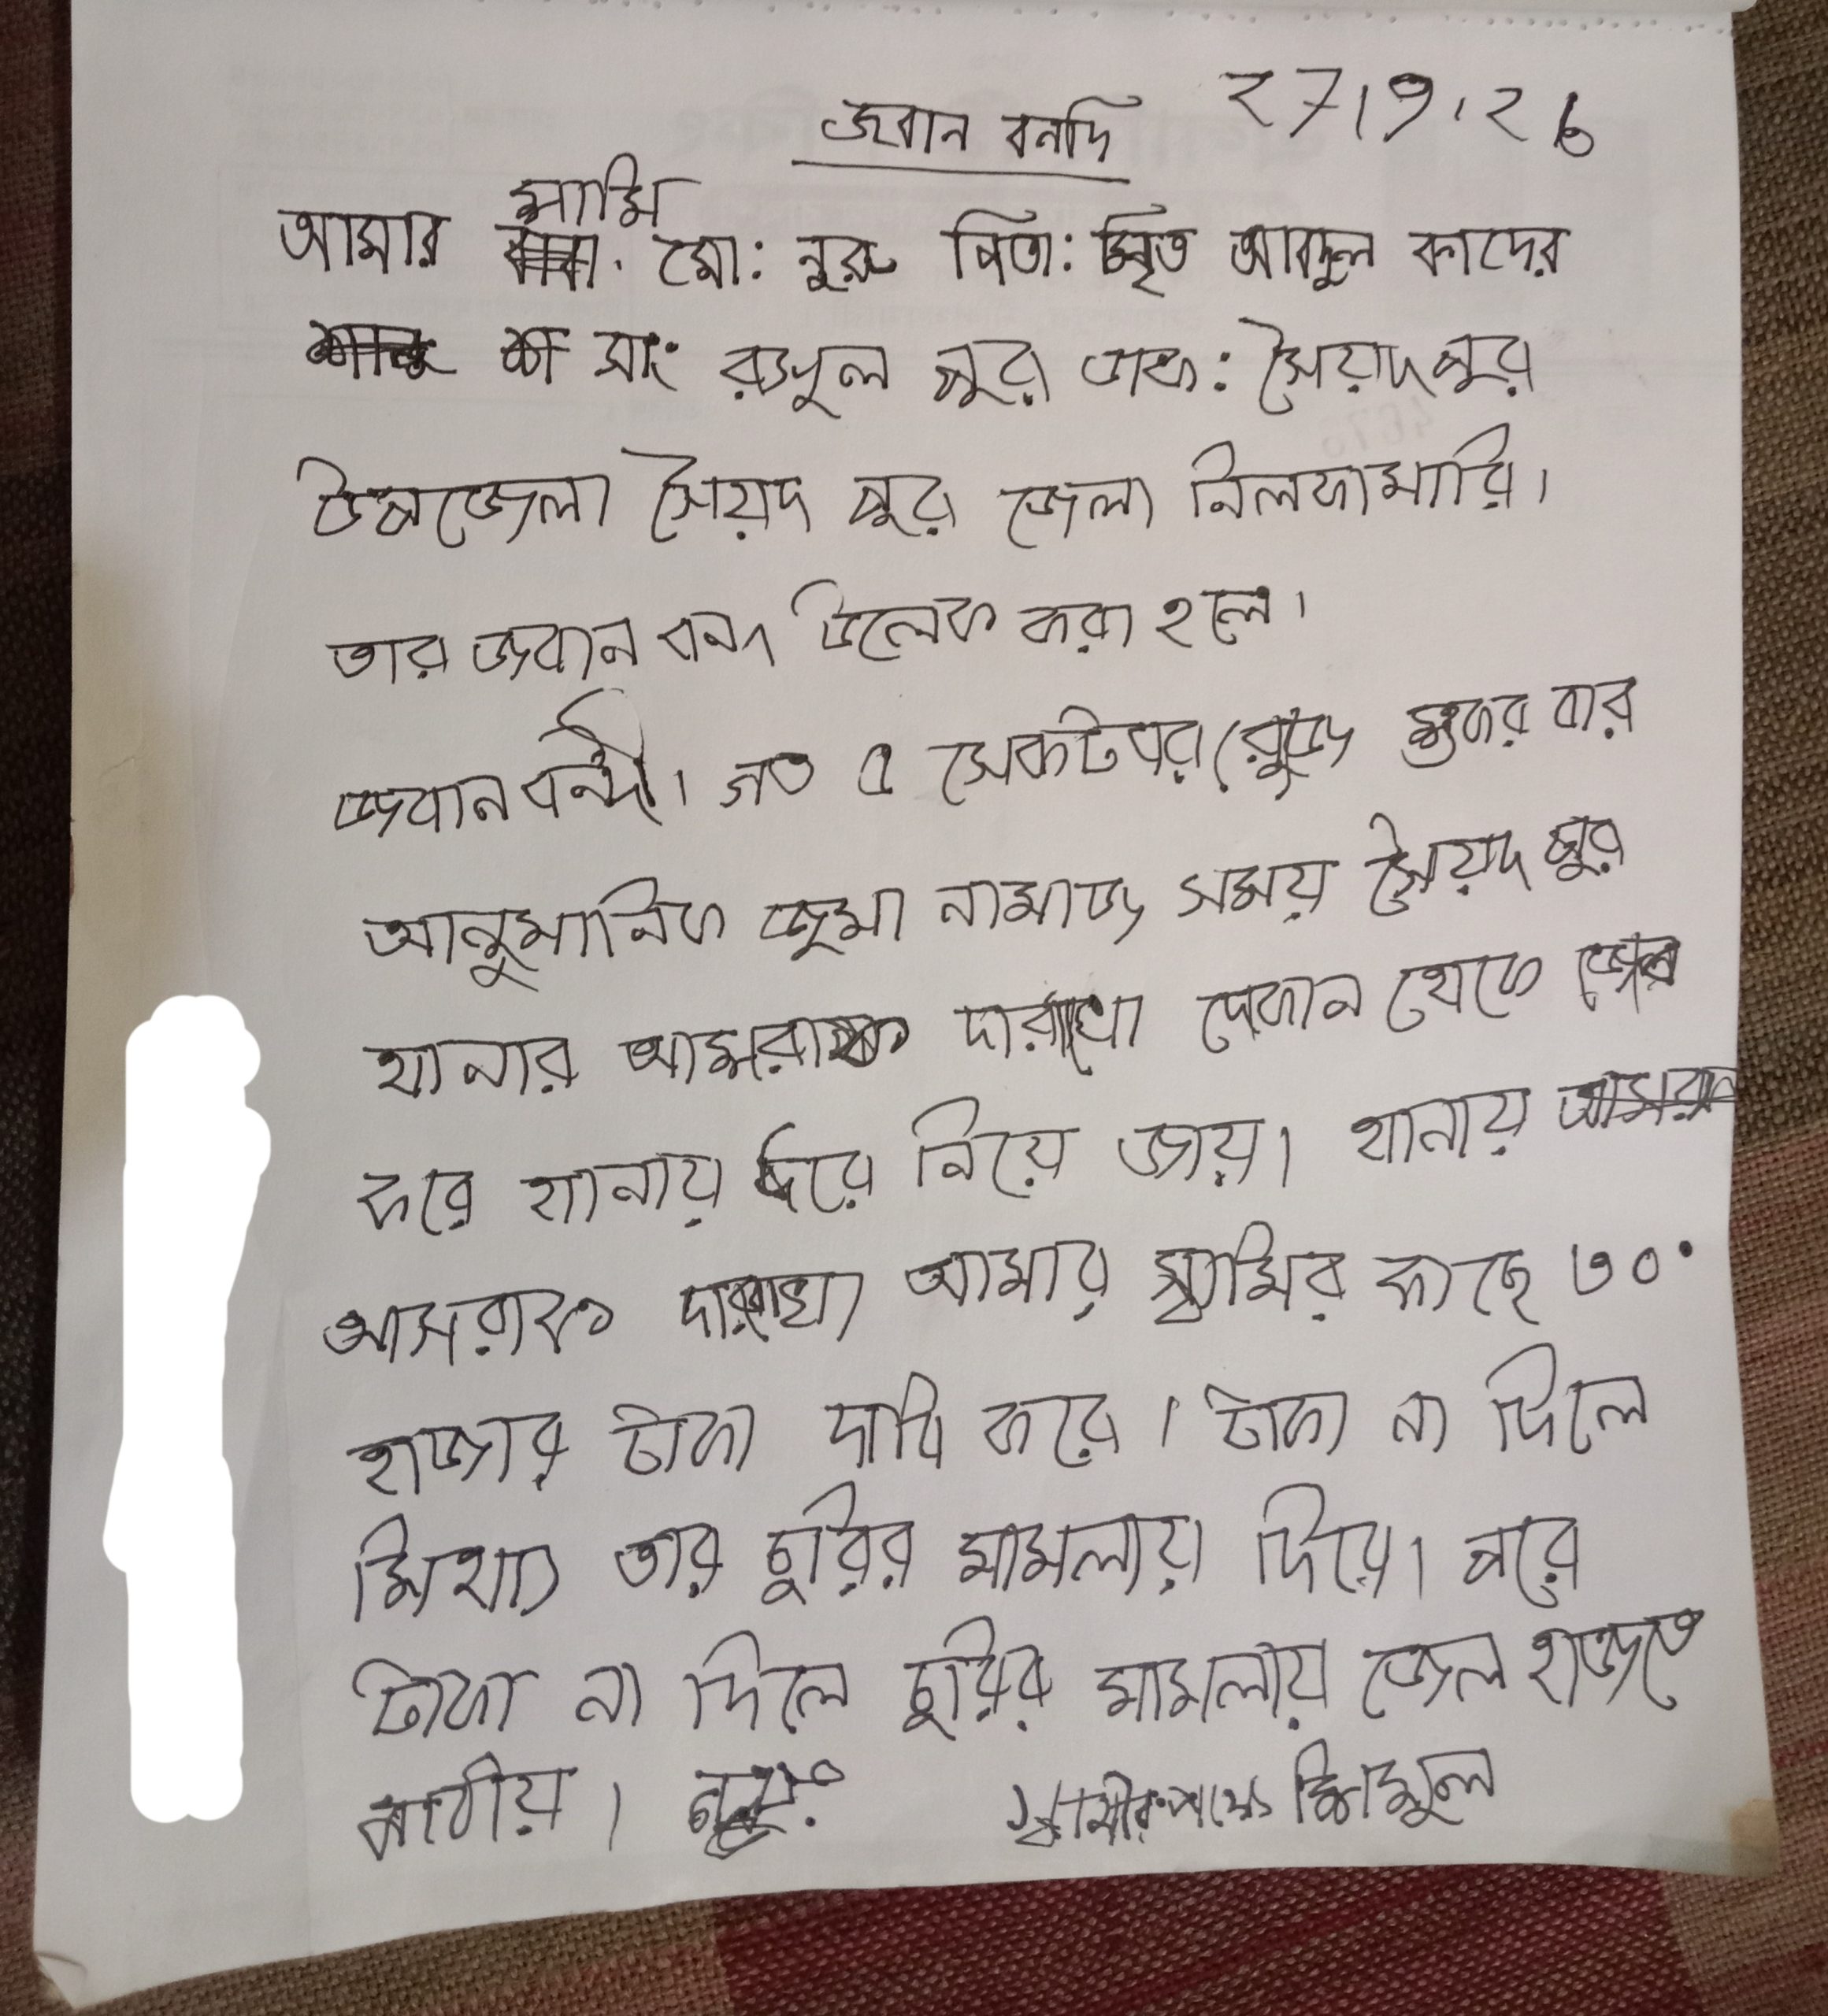 জবান বনদি ২7/9/২6
আমার সামি মো: নুরু পিতা: মৃত আবদুল কাদের
সাং রসুল পুর ডাক: সৈয়দপুর
উপজেলা সৈয়দ পুর জেলা নিলফামারি।
তার জবান বন্দ উলেক করা হলে।
জবান বন্দী। গত ৫ সেকটেমবর রুজ শুকর বার
আনুমানিক জুমা নামাজ সময় সৈয়দ পুর
থানার আসরাফ দারগা দোকান থেতে
করে থানায় ধরে নিয়ে জায়। থানায়
আসরাফ দারগা আমার স্বামির কাছে ৩০
হাজার টাকা দাবি করে। টাকা না দিলে
মিথ্যা তার চুরির মামলায় দিবে। পরে
টাকা না দিলে চুরির মামলায় জেল হাজতে
পাঠায়। স্বামীর পক্ষে শিমুল